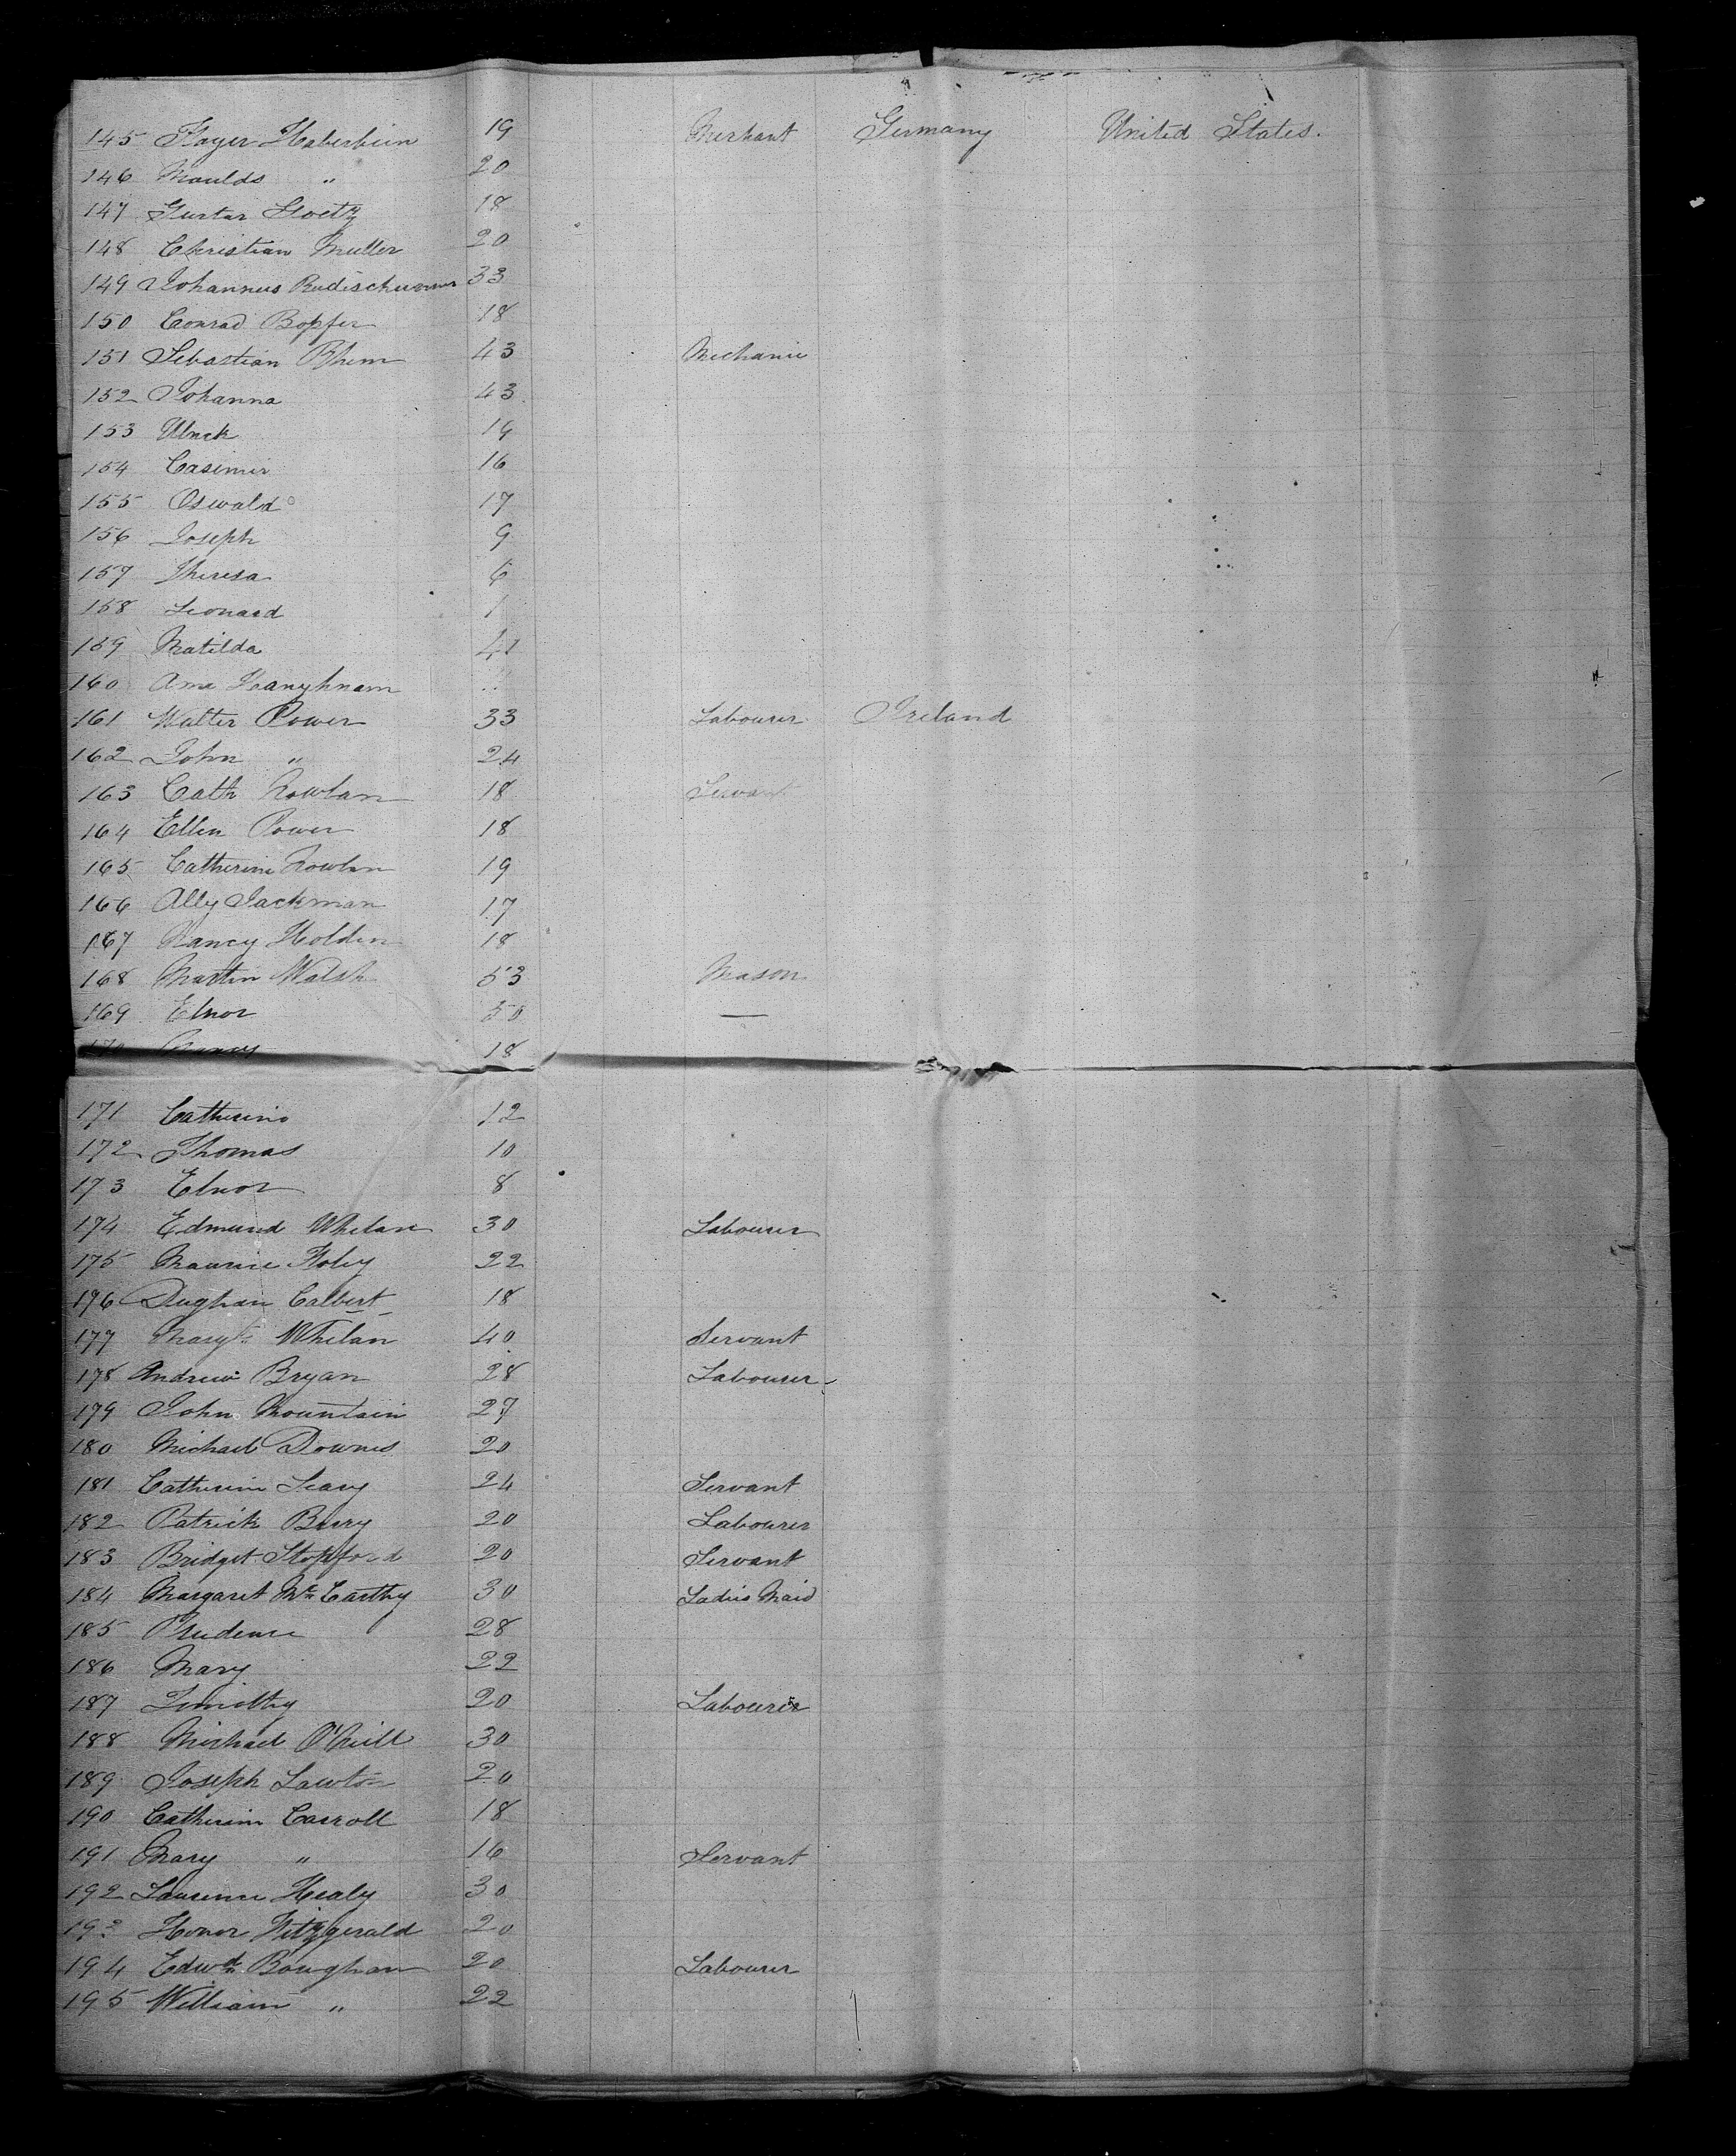 145 Hayer Haberbein 19 Merhant Germany United States.
146 Moulds " 20
147 Gustav Goetz 18
148 Christian Muller 20
149 Johannus 33
150 Conrad Bopfer 18
151 Sebastian Rhem 43 Mechanic
152 Johanna 43
153 Ulrick 19
154 Casimir 16
155 Oswald 17
156 Joseph 9
157 Theresa 6
158 Leonard 1
159 Matilda 41
160
161 Walter Power 33 Labourer Ireland
162 John " 24
163 Cath Nowlan 18 Servant
164 Ellen Power 18
165 Catherine Nowlan 19
166 Ally Jackman 17
167 Nancy Holden 18
168 Martin Walsh 53 Mason
169 Elnor 50 —
170 18
171 Catherine 12
172 Thomas 10
173 Elnor 8
174 Edmund Whelan 30 Labourer
175 Maurice Foley 22
196 Calbert 18
177 Whelan 40 Servant
178 Andrew Bryan 28 Labourer
179 John Mountain 27
180 Michael Downes 20
181 Catherine Leary 24 Servant
182 Patrick Barry 20 Labourer
183 Bridget Stopford 20 Servant
184 Margaret Mc Carthy 30 Ladies Maid
185 Prudence 28
186 Mary 22
187 Timothy 20 Labourer
188 Michael O'Neill 30
189 Joseph Lawton 20
190 Catherine Carroll 18
191 Mary " 16 Servant
192 Laurence Healy 30
193 Honor Fitzgerald 20
194 Edwd Baughan 20 Labourer
195 William " 22